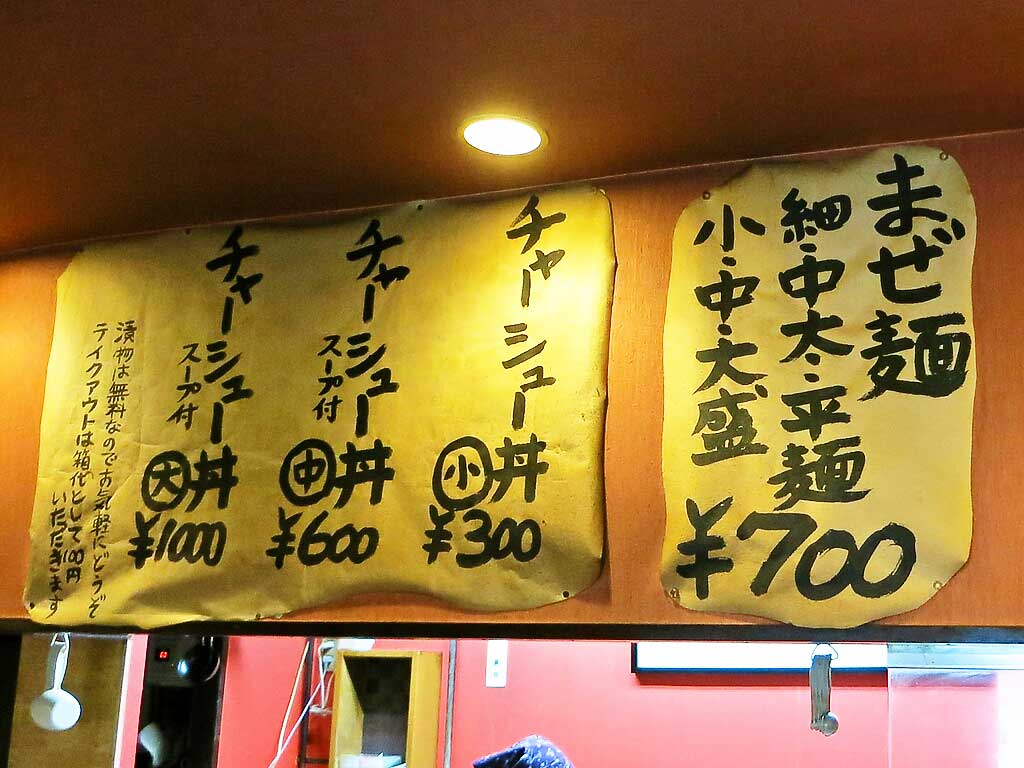 まぜ麺
細・中太・平麺
小・中・大盛
¥700
チャーシュー丼
小
¥300
チャーシュー丼
スープ付
中
¥600
チャーシュー丼
スープ付
大
¥1000
漬物は無料なのでお気軽にどうぞ
テイクアウトは箱代として100円
いただきます